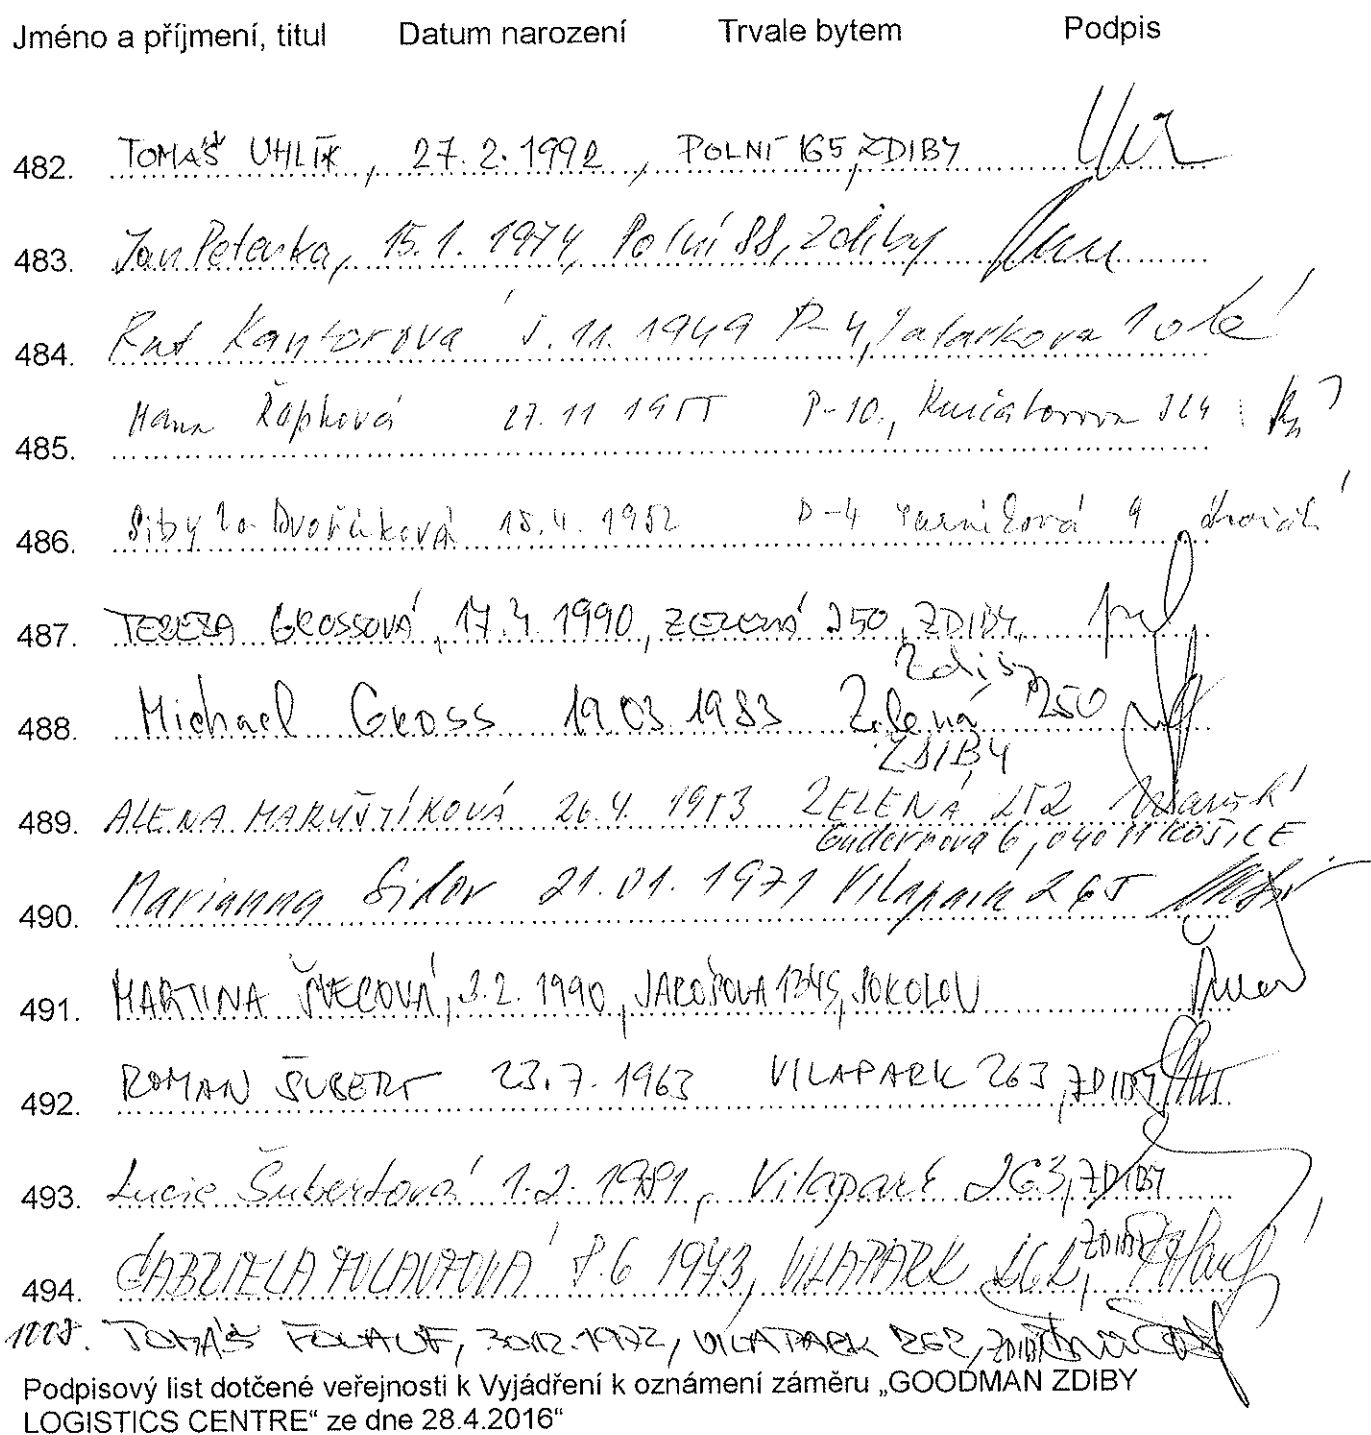 Jméno a příjmení, titul Datum narození Trvale bytem Podpis
482. TOMÁŠ UHLÍK, 27.2.1992, POLNÍ 165, ZDIBY
483. Jan Peterka, 15.1.1974, Polní 88, Zdiby
484. Rut Kantorová 5.11.1949 P-4,
485. Hana Řápková 27.11 1955 P-10., Kurčatovova 324
486. Dvořáková 15.4.1952 P-4 9
487. TEREZA GROSSOVÁ, 17.4.1990, ZELENÁ 250, ZDIBY,
Zdiby
488. Michael Gross 19.03.1983 Zelená 250
ZDIBY
489. ALENA MARUŠTÍKOVÁ 26.4.1953 ZELENÁ 252
6, 040 11 KOŠICE
490. Marianna Sidor 21.01.1971 Vilapark 265
491. MARTINA ŠVECOVÁ, 3.2.1990, JAROŠOVA 1345, SOKOLOV
492. ROMAN ŠUBERT 23.7.1963 VILAPARK 263, ZDIBY
493. Lucie Šubertová 1.2.1981, Vilapark 263, ZDIBY
494. GABRIELA 8.6 1973, VILAPARK 262, ZDIBY
TOMÁŠ 30.12.1972, VILAPARK 262, ZDIBY
Podpisový list dotčené veřejnosti k Vyjádření k oznámení záměru „GOODMAN ZDIBY
LOGISTICS CENTRE“ ze dne 28.4.2016“